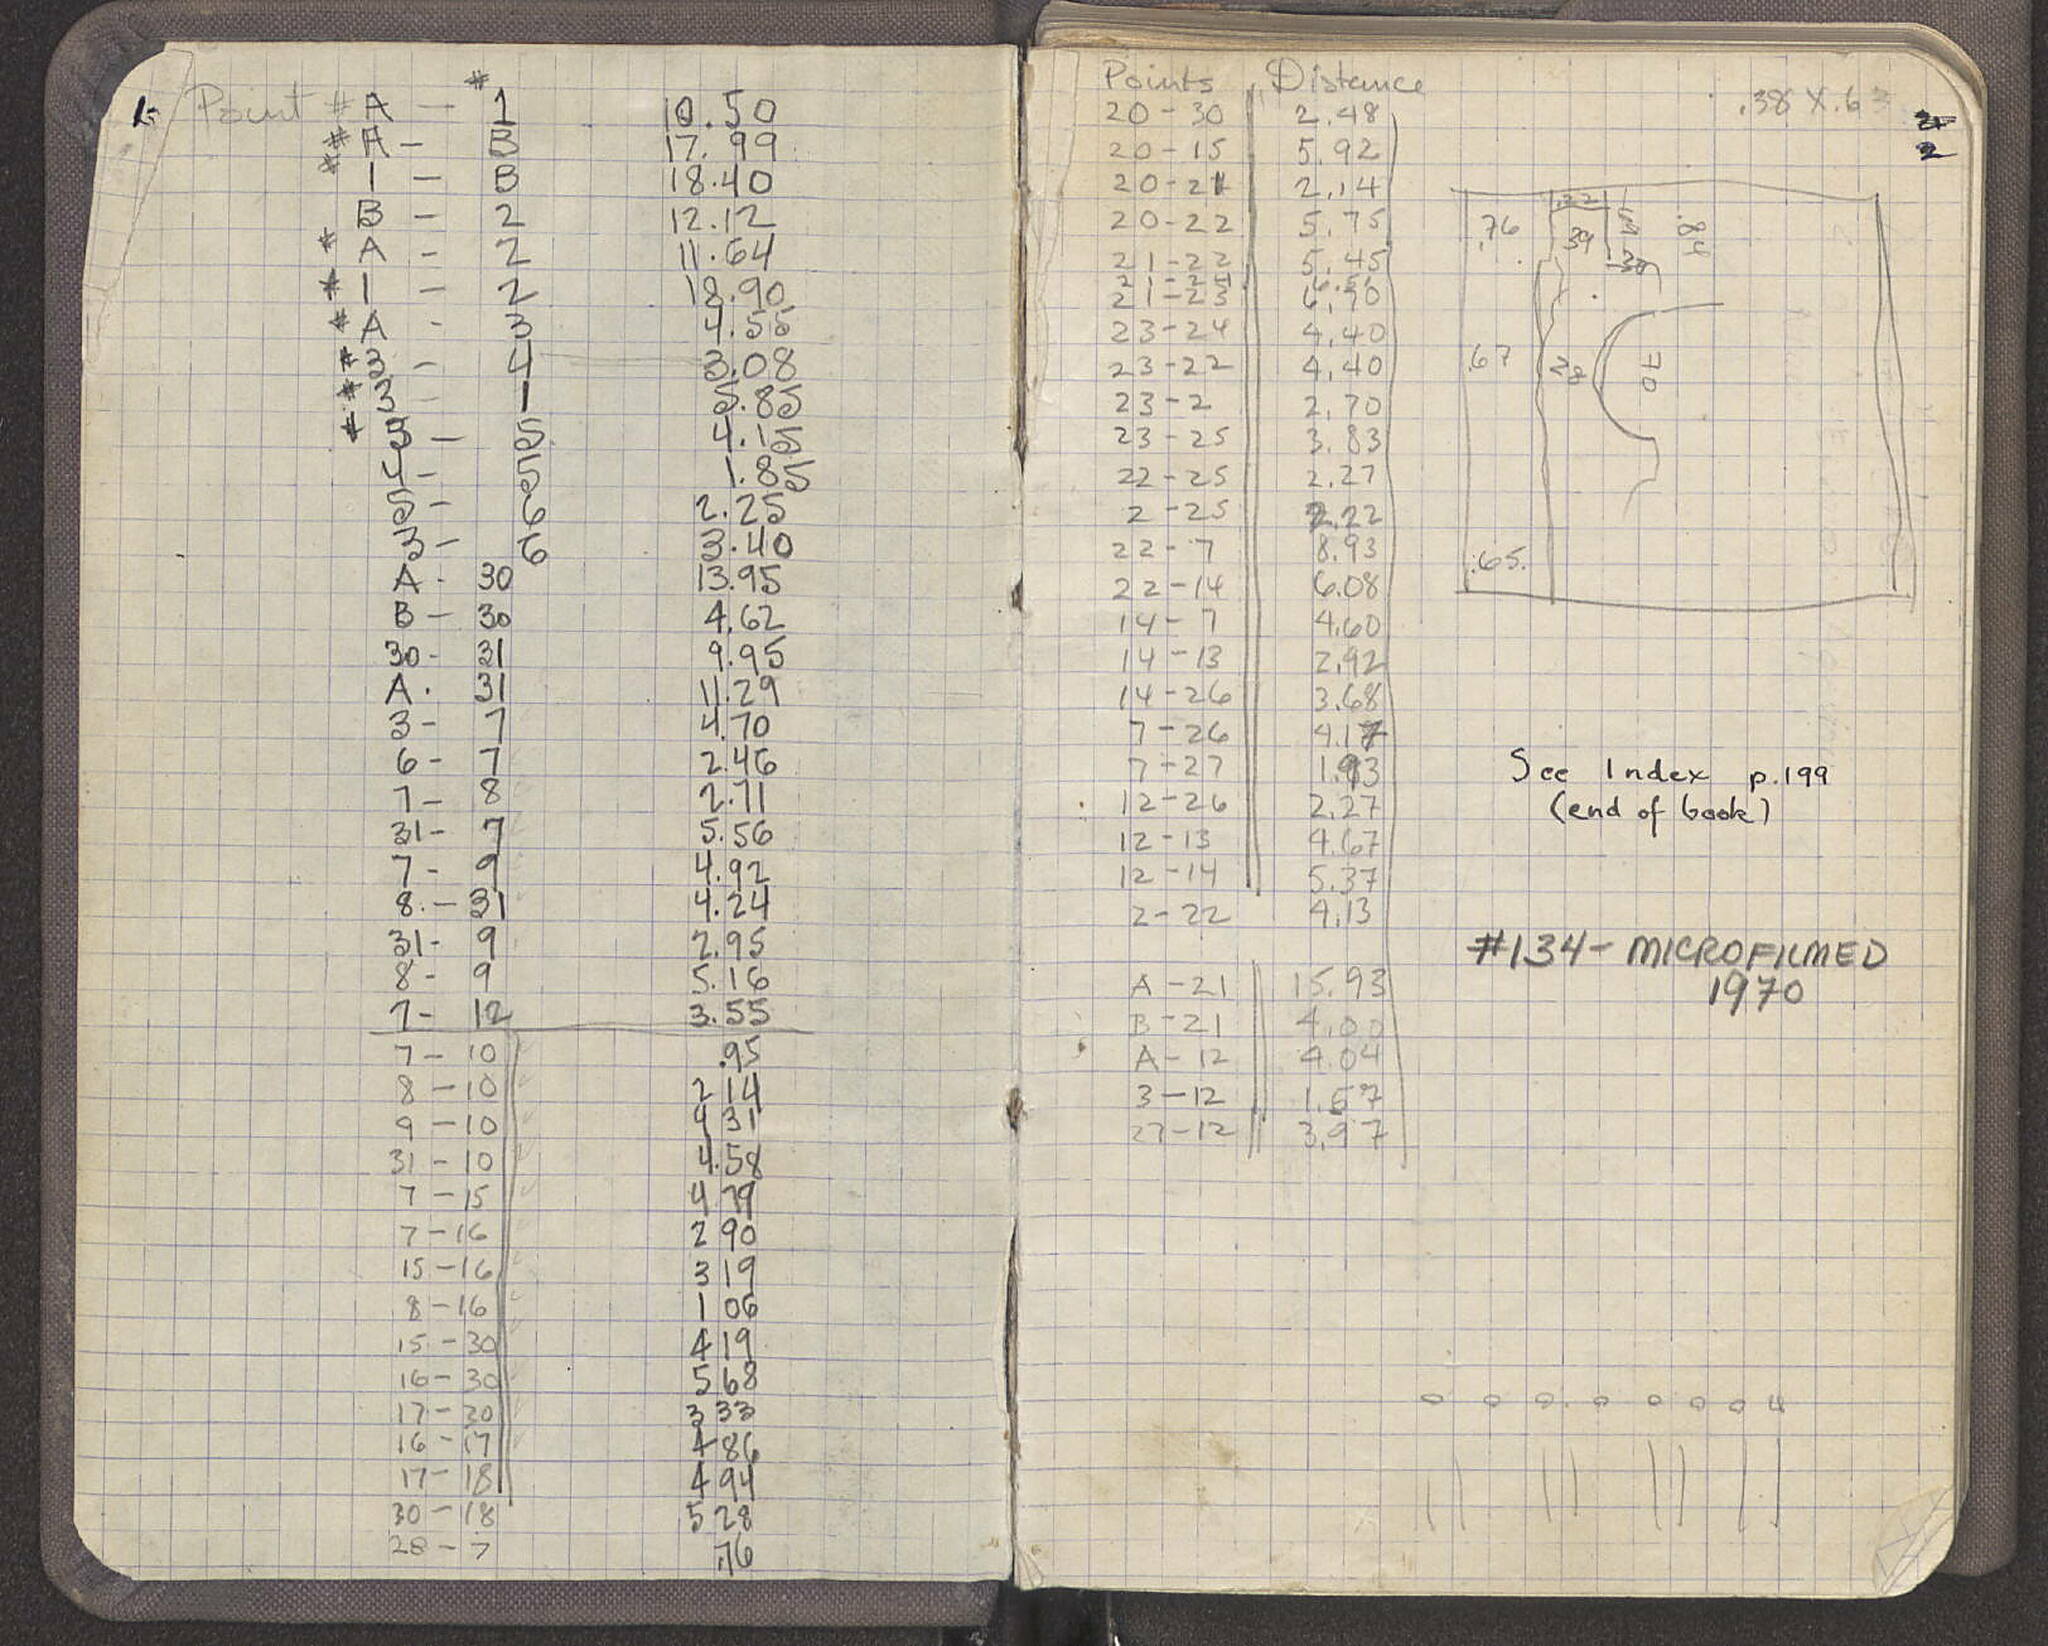 1.
Point # A - # 1 10.50
# A - B 17.99
* 1 - B 18.40
B - 2 12.12
* A - 2 11.64
* 1 - 2 18.90
* A - 3 4.55
* 3 - 4 3.08
* 3 - 1 5.85
* 3 - 5 4.15
4 - 5 1.85
5 - 6 2.25
3 - 6 3.40
A - 30 13.95
B - 30 4.62
30 - 31 9.95
A. 31 11.29
3 - 7 4.70
6 - 7 2.46
7 - 8 2.71
31 - 7 5.56
7 - 9 4.92
8. - 31 4.24
31 - 9 2.95
8 - 9 5.16
7 - 12 3.55
7 - 10 .95
8 - 10 2 14
9 - 10 4 31
31 - 10 4.58
7 - 15 4 79
7 - 16 2 90
15 - 16 3 19
8 - 16 1 06
15 - 30 4 19
16 - 30 5 68
17 - 30 3 33
16 - 17 4 86
17 - 18 4 94
30 - 18 5 28
28 - 7 .76
Points Distance
20 - 30 2.48
20 - 15 5.92
20 - 21 2.14
20 - 22 5.75
21 - 22 5.45
21 - 23 6.70
23 - 24 4.40
23 - 22 4.40
23 - 2 2.70
23 - 25 3.83
22 - 25 2.27
2 - 25 2.22
22 - 7 8.93
22 - 14 6.08
14 - 7 4.60
14 - 13 2.92
14 - 26 3.68
7 - 26 4.17
7 - 27 1.93
12 - 26 2.27
12 - 13 4.67
12 - 14 5.37
2 - 22 4.13
A - 21 15.93
B - 21 4.00
A - 12 4.04
3 - 12 1.57
27 - 12 3.97
.38 X .63
2
.76 .22 39 .84
.67 28 70
.65.
See Index p.199
(end of book)
#134 - MICROFILMED
1970
0 0 0. 0 0 0 0 4